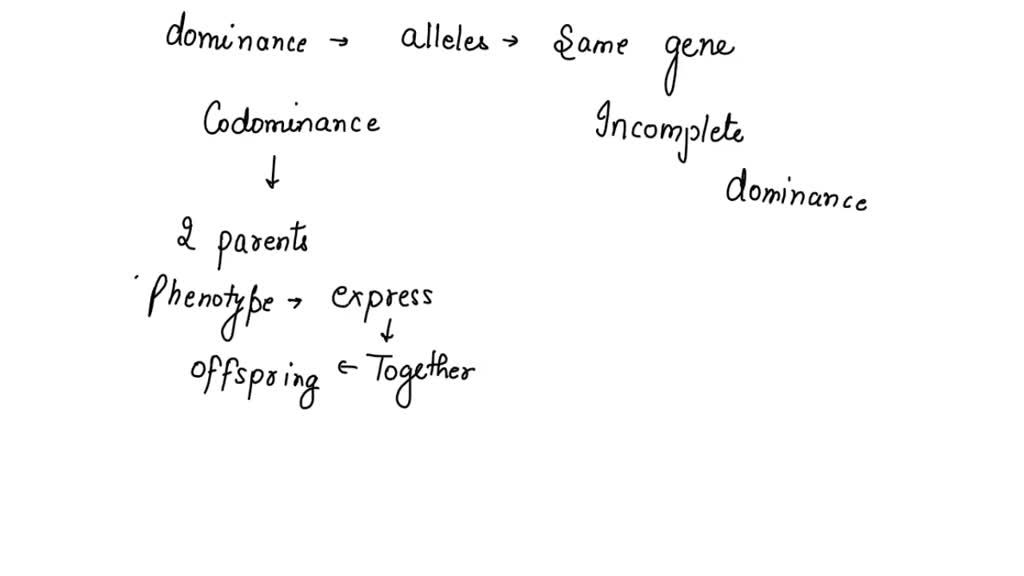 dominance → alleles → Same gene
Codominance
↓
Incomplete
dominance
2 parents
Phenotype → express
↓
offspring ← Together